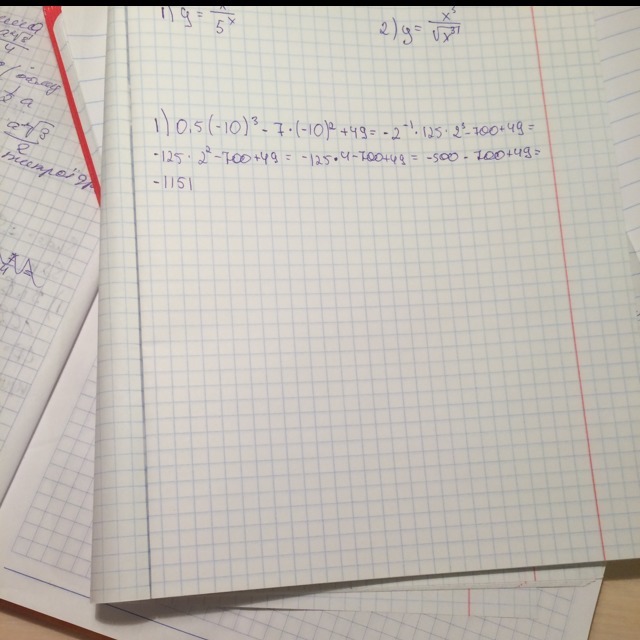 1) y = x / 5^x
2) y = x^3 / √x^3
1) 0,5(-10)^3 - 7·(-10)^2 + 49 = -2^-1 · 125 · 2^3 - 700 + 49 =
-125 · 2^2 - 700 + 49 = -125 · 4 - 700 + 49 = -500 - 700 + 49 =
-1151